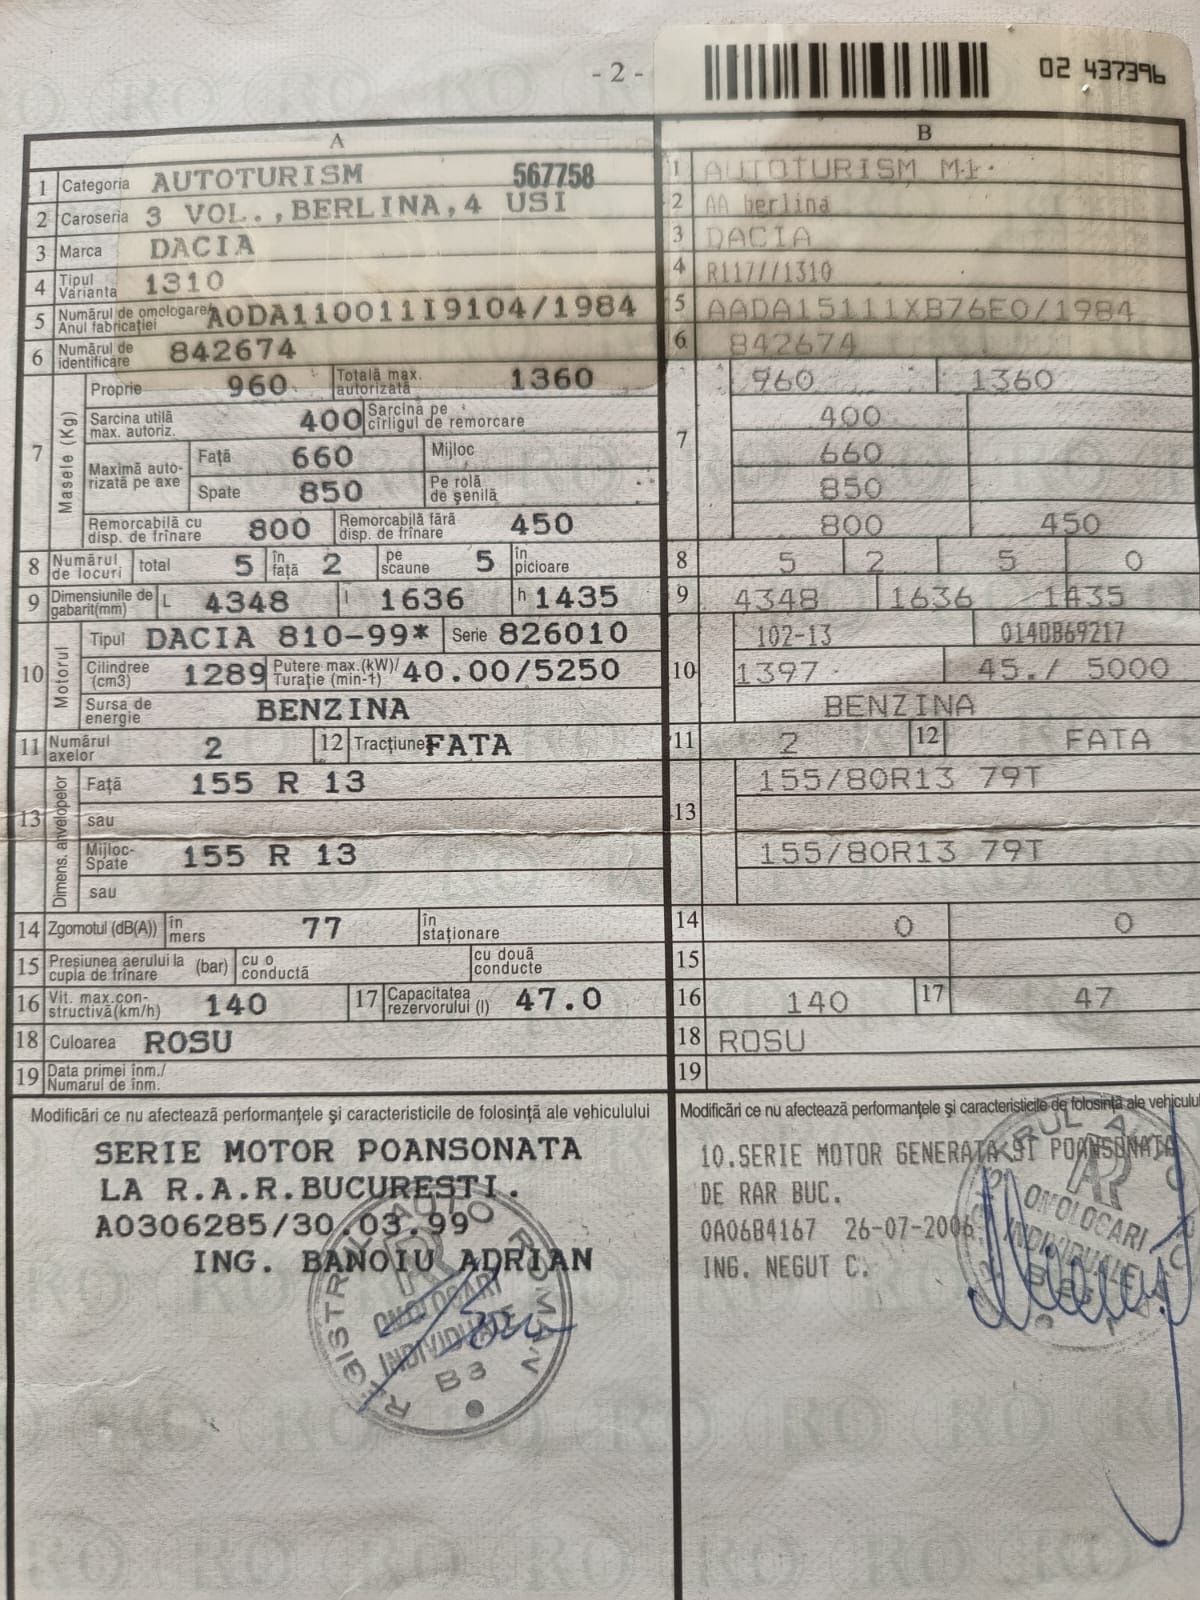 - 2 -
02 437396
A
1 Categoria AUTOTURISM 567758
2 Caroseria 3 VOL.,BERLINA,4 USI
3 Marca DACIA
4 Tipul Varianta 1310
5 Numărul de omologare/ Anul fabricației AODA110011I9104/1984
6 Numărul de identificare 842674
7 Masele (Kg)
Proprie 960 Totală max. autorizată 1360
Sarcina utilă max. autoriz. 400 Sarcina pe cîrligul de remorcare
Maximă autorizată pe axe Față 660 Mijloc
Spate 850 Pe rolă de șenilă
Remorcabilă cu disp. de frînare 800 Remorcabilă fără disp. de frînare 450
8 Numărul de locuri total 5 în față 2 pe scaune 5 în picioare
9 Dimensiunile de gabarit(mm) L 4348 l 1636 h 1435
10 Motorul Tipul DACIA 810-99* Serie 826010
Cilindree (cm3) 1289 Putere max.(kW)/ Turație (min-1) 40.00/5250
Sursa de energie BENZINA
11 Numărul axelor 2 12 Tracțiune FATA
13 Dimens. anvelopelor Față 155 R 13
sau
Mijloc- Spate 155 R 13
sau
14 Zgomotul (dB(A)) în mers 77 în staționare
15 Presiunea aerului la cupla de frînare (bar) cu o conductă cu două conducte
16 Vit. max.constructivă(km/h) 140 17 Capacitatea rezervorului (l) 47.0
18 Culoarea ROSU
19 Data primei înm./ Numărul de înm.
Modificări ce nu afectează performanțele și caracteristicile de folosință ale vehiculului
SERIE MOTOR POANSONATA
LA R.A.R.BUCURESTI.
A0306285/30.03.99
ING. BANOIU ADRIAN
REGISTRUL AUTO ROMAN
OMOLOGARI
INDIVIDUALE
B3
B
1 AUTOTURISM M1
2 AA berlina
3 DACIA
4 R117///1310
5 AADA15111XB76E0/1984
6 842674
7 960 1360
400
660
850
800 450
8 5 2 5 0
9 4348 1636 1435
10 102-13 014DB69217
1397 45./ 5000
BENZINA
11 2 12 FATA
13 155/80R13 79T
155/80R13 79T
14 0 0
15
16 140 17 47
18 ROSU
19
Modificări ce nu afectează performanțele și caracteristicile de folosință ale vehicul
10.SERIE MOTOR GENERATA SI POANSONATA
DE RAR BUC.
0A0684167 26-07-2006
ING. NEGUT C.
OMOLOGARI
INDIVIDUALE